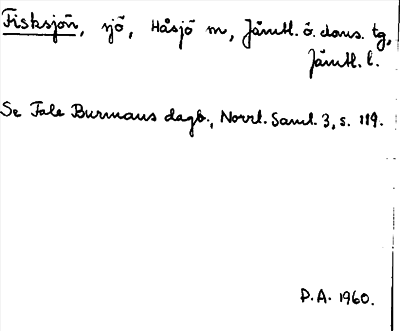 Fisksjön, sjö, Håsjö sn, Jämtl. ö. doms. tg,
Jämtl. l.
Se Fale Burmans dagb., Norrl. Saml. 3, s. 119.
P.A. 1960.